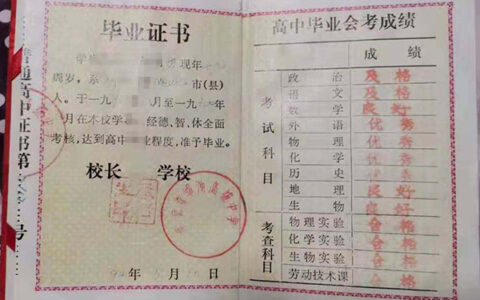 毕业证书
学生 现年
岁，系 市(县)
人。于一九 月至一九 年
月在本校 经德、智、体全面
考核，达到高中 业程度，准予毕业。
校长 学校
年 月
普通高中证书第 号
高中毕业会考成绩
成绩
考试科目
政治 及格
语文 及格
数学 良好
外语 优秀
物理 优秀
化学 优秀
历史
地理 良好
生物 良好
考查科目
物理实验 合格
化学实验 合格
生物实验 合格
劳动技术课 合格